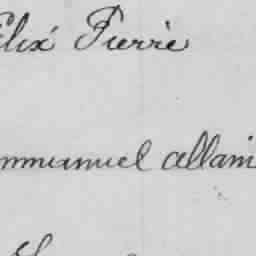 élix Pierre
mmanuel allain